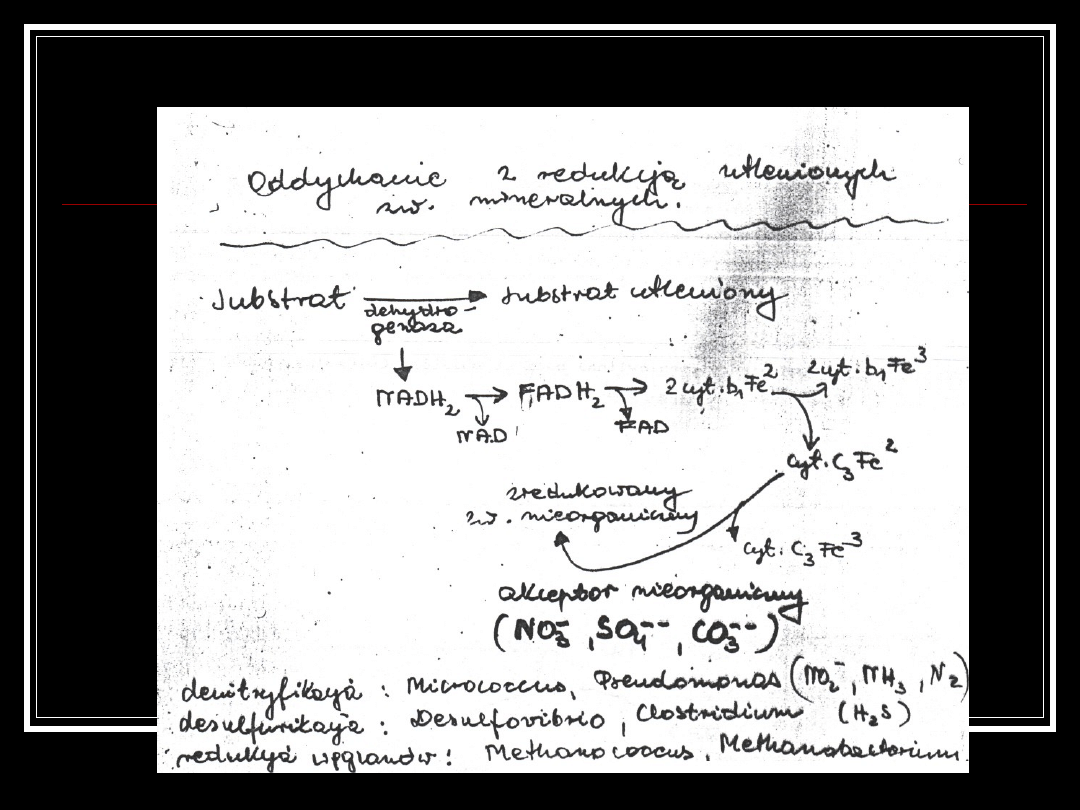 Oddychanie z redukcją utlenionych
zw. mineralnych.
Substrat substrat utleniony
dehydro-
genaza
NADH₂ FADH₂ 2cyt.b₁Fe² 2cyt.b₁Fe³
NAD FAD
cyt.C₃Fe²
zredukowany
zw. nieorganiczny
cyt.C₃Fe³
akceptor nieorganiczny
(NO₃⁻, SO₄⁻⁻, CO₃⁻⁻)
denitryfikacja : Micrococcus, Pseudomonas (NO₂⁻, NH₃, N₂)
desulfurikacja : Desulfovibrio, Clostridium (H₂S)
redukcja węglanów : Methanococcus, Methanobacterium.